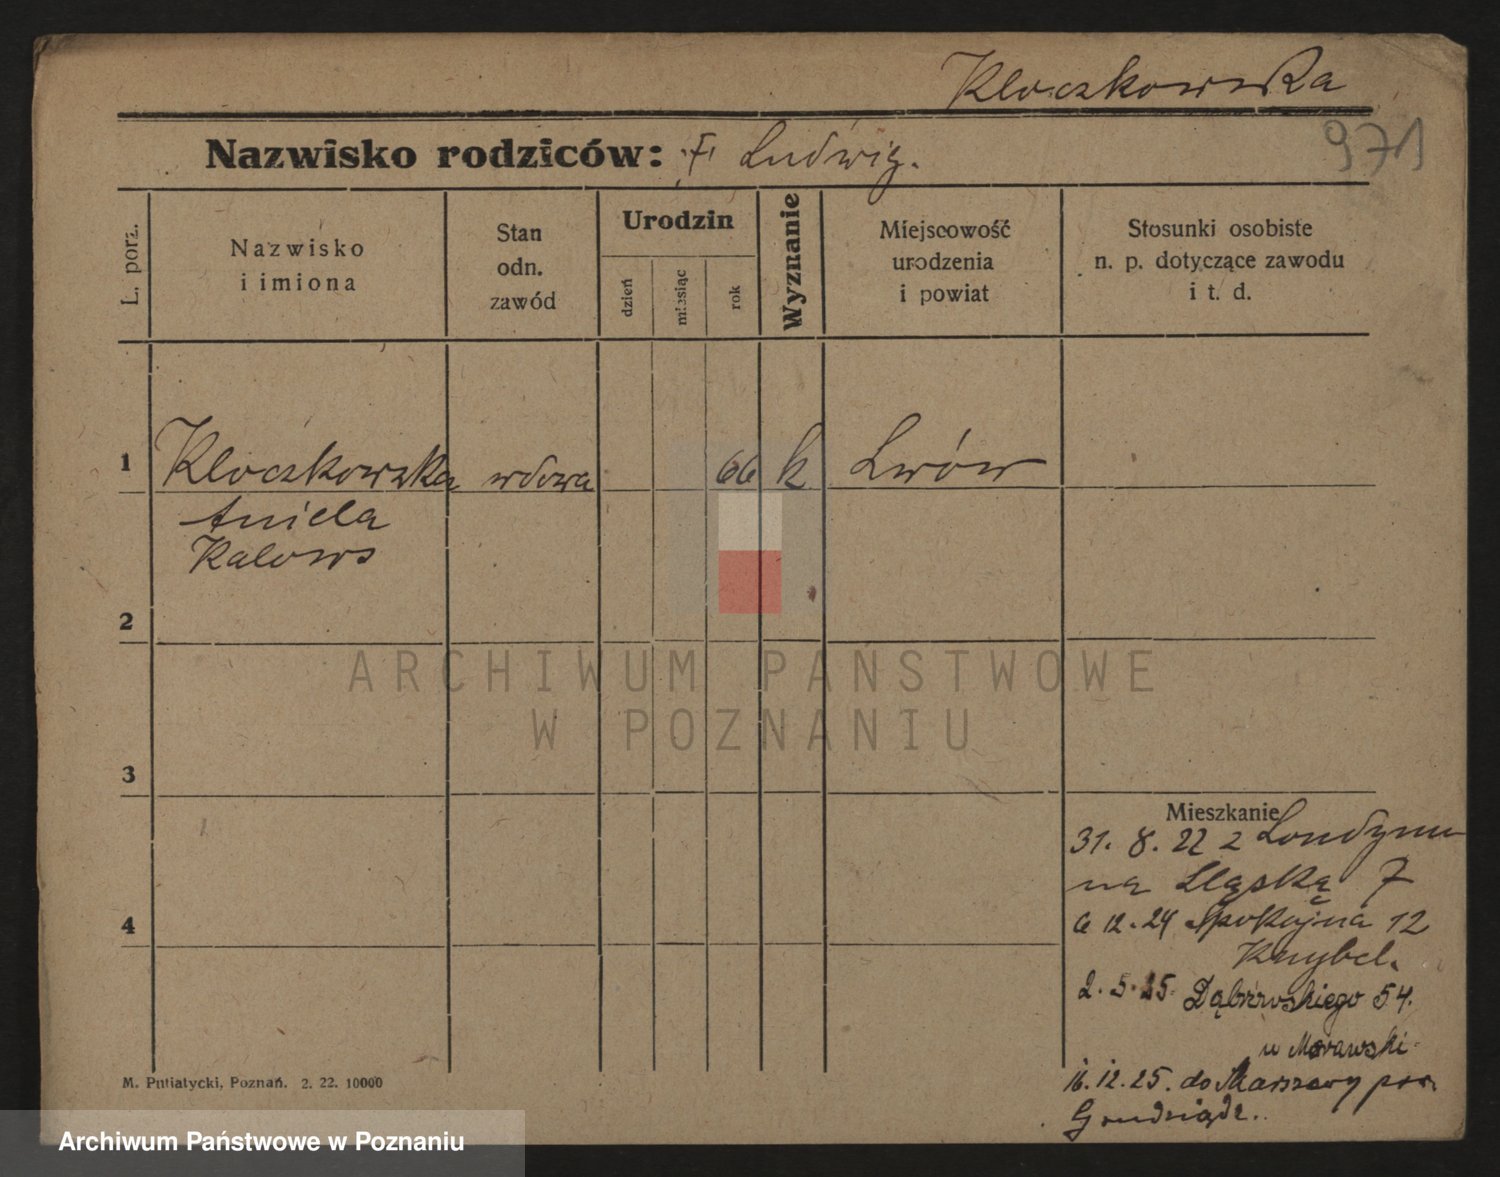 Kloczkowska
971
Nazwisko rodziców: † Ludwig.
L. porz.
Nazwisko
i imiona
Stan
odn.
zawód
Urodzin
dzień
miesiąc
rok
Wyznanie
Miejscowość
urodzenia
i powiat
Stosunki osobiste
n. p. dotyczące zawodu
i t. d.
1 Kloczkowska wdowa 66 k Lwów
Aniela
Kalows
2
ARCHIWUM PAŃSTWOWE
W POZNANIU
3
Mieszkanie
31. 8. 22 z Londynu
na Śląską 7
6 12. 24 Spokojna 12
Knybel.
4
2. 5. 25. Dąbrowskiego 54.
u Morawski
16. 12. 25. do Warszawy pow.
Grudziądz..
M. Putiatycki, Poznań. 2. 22. 10000
Archiwum Państwowe w Poznaniu